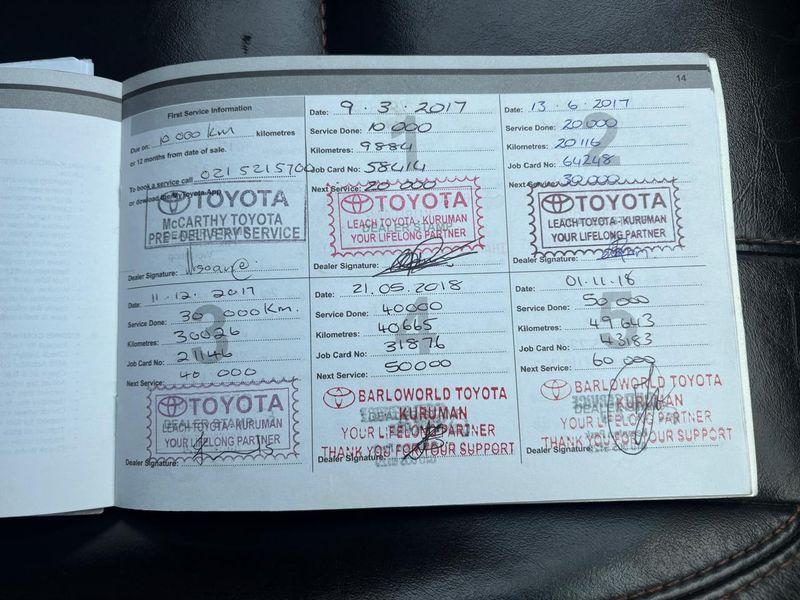 14
First Service Information
Due on: 10 000 km kilometres
or 12 months from date of sale.
To book a service call 021 5215700
or download the MyToyota App
TOYOTA
McCARTHY TOYOTA
PRE-DELIVERY SERVICE
Dealer Signature:
1
Date: 9 . 3 . 2017
Service Done: 10 000
Kilometres: 9884
Job Card No: 58414
Next Service: 20 000
TOYOTA
LEACH TOYOTA - KURUMAN
YOUR LIFELONG PARTNER
DEALER STAMP
Dealer Signature:
2
Date: 13 . 6 . 2017
Service Done: 20 000
Kilometres: 20 116
Job Card No: 64248
Next Service: 30.000
TOYOTA
LEACH TOYOTA - KURUMAN
YOUR LIFELONG PARTNER
Dealer Signature:
3
Date: 11 . 12 . 2017
Service Done: 30 000 Km.
Kilometres: 30026
Job Card No: 21146
Next Service: 40 000
TOYOTA
DEALER STAMP
LEACH TOYOTA - KURUMAN
YOUR LIFELONG PARTNER
Dealer Signature:
4
Date: 21.05.2018
Service Done: 40000
Kilometres: 40665
Job Card No: 31876
Next Service: 50000
BARLOWORLD TOYOTA
KURUMAN
YOUR LIFELONG PARTNER
THANK YOU FOR YOUR SUPPORT
Dealer Signature:
5
Date: 01.11.18
Service Done: 50 000
Kilometres: 49 643
Job Card No: 43183
Next Service: 60 000
BARLOWORLD TOYOTA
KURUMAN
YOUR LIFELONG PARTNER
THANK YOU FOR YOUR SUPPORT
Dealer Signature: